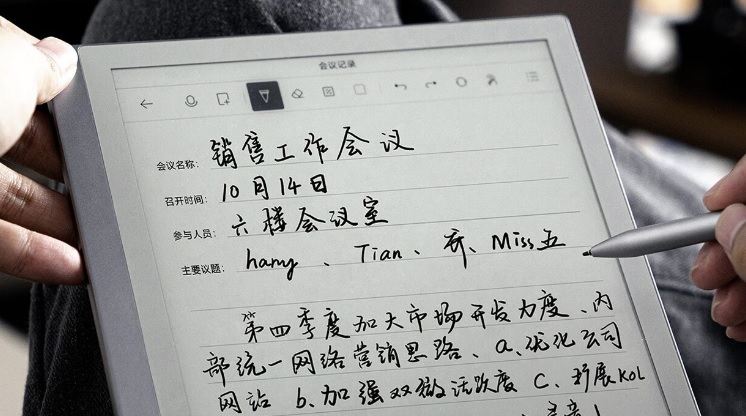 会议记录
会议名称： 销售工作会议
召开时间： 10月14日
参与人员： 六楼会议室
主要议题： hany 、Tian、乔、Miss五
第四季度加大市场开发力度、内
部统一网络营销思路、a、优化公司
网站 b、加强双微活跃度 C、扩展KOL